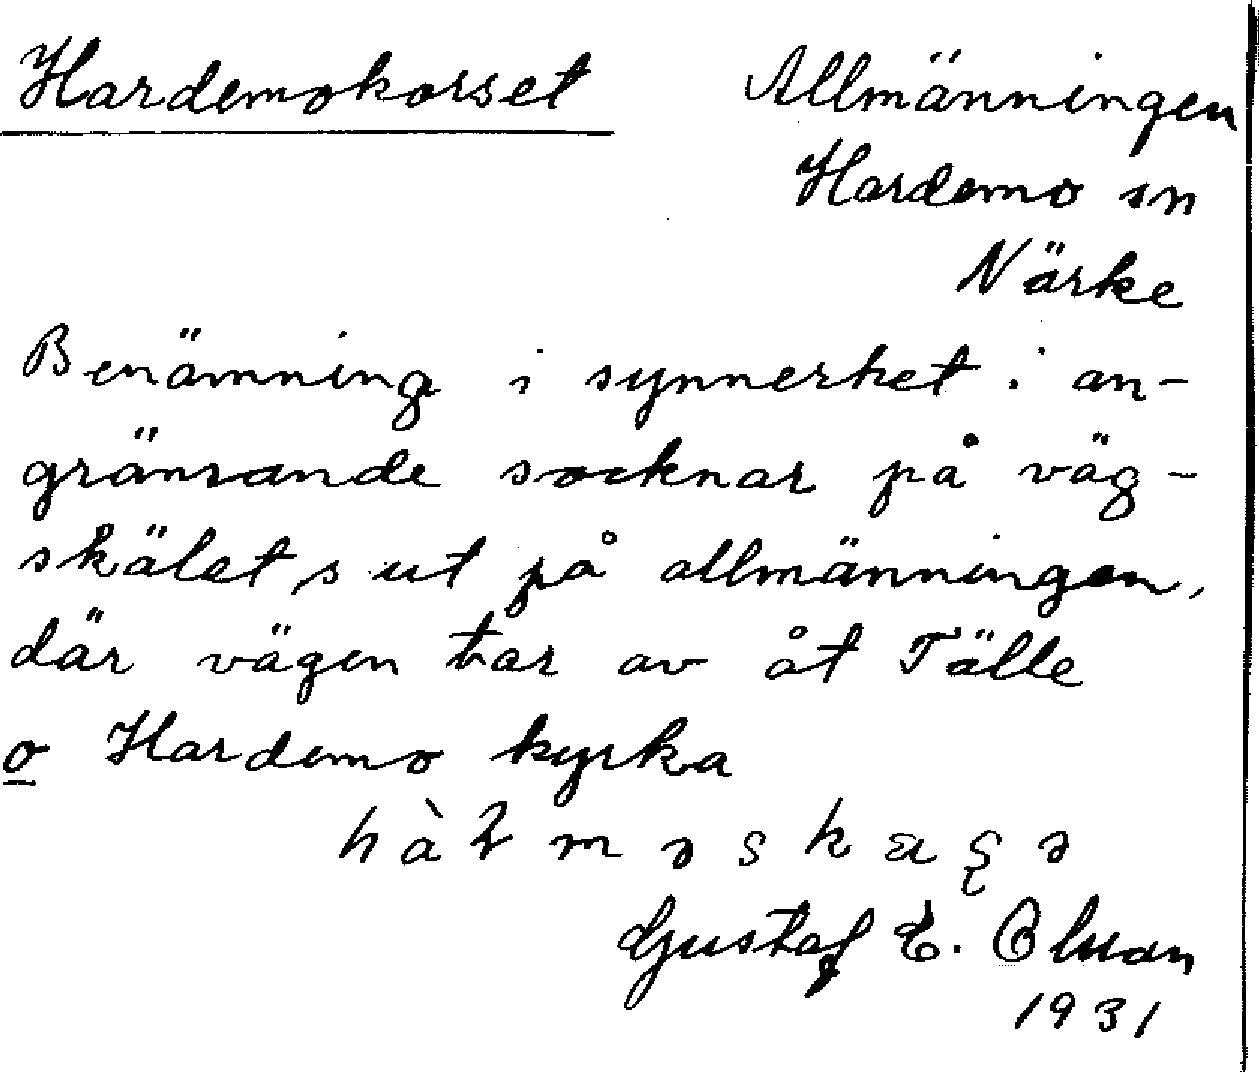 Hardemokorset
Allmänningen
Hardemo sn
Närke
Benämning i synnerhet i an-
gränsande socknar på väg-
skälet, s ut på allmänningen,
där vägen tar av åt Tälle
o Hardemo kyrka
Gustaf E. Olsson
1931